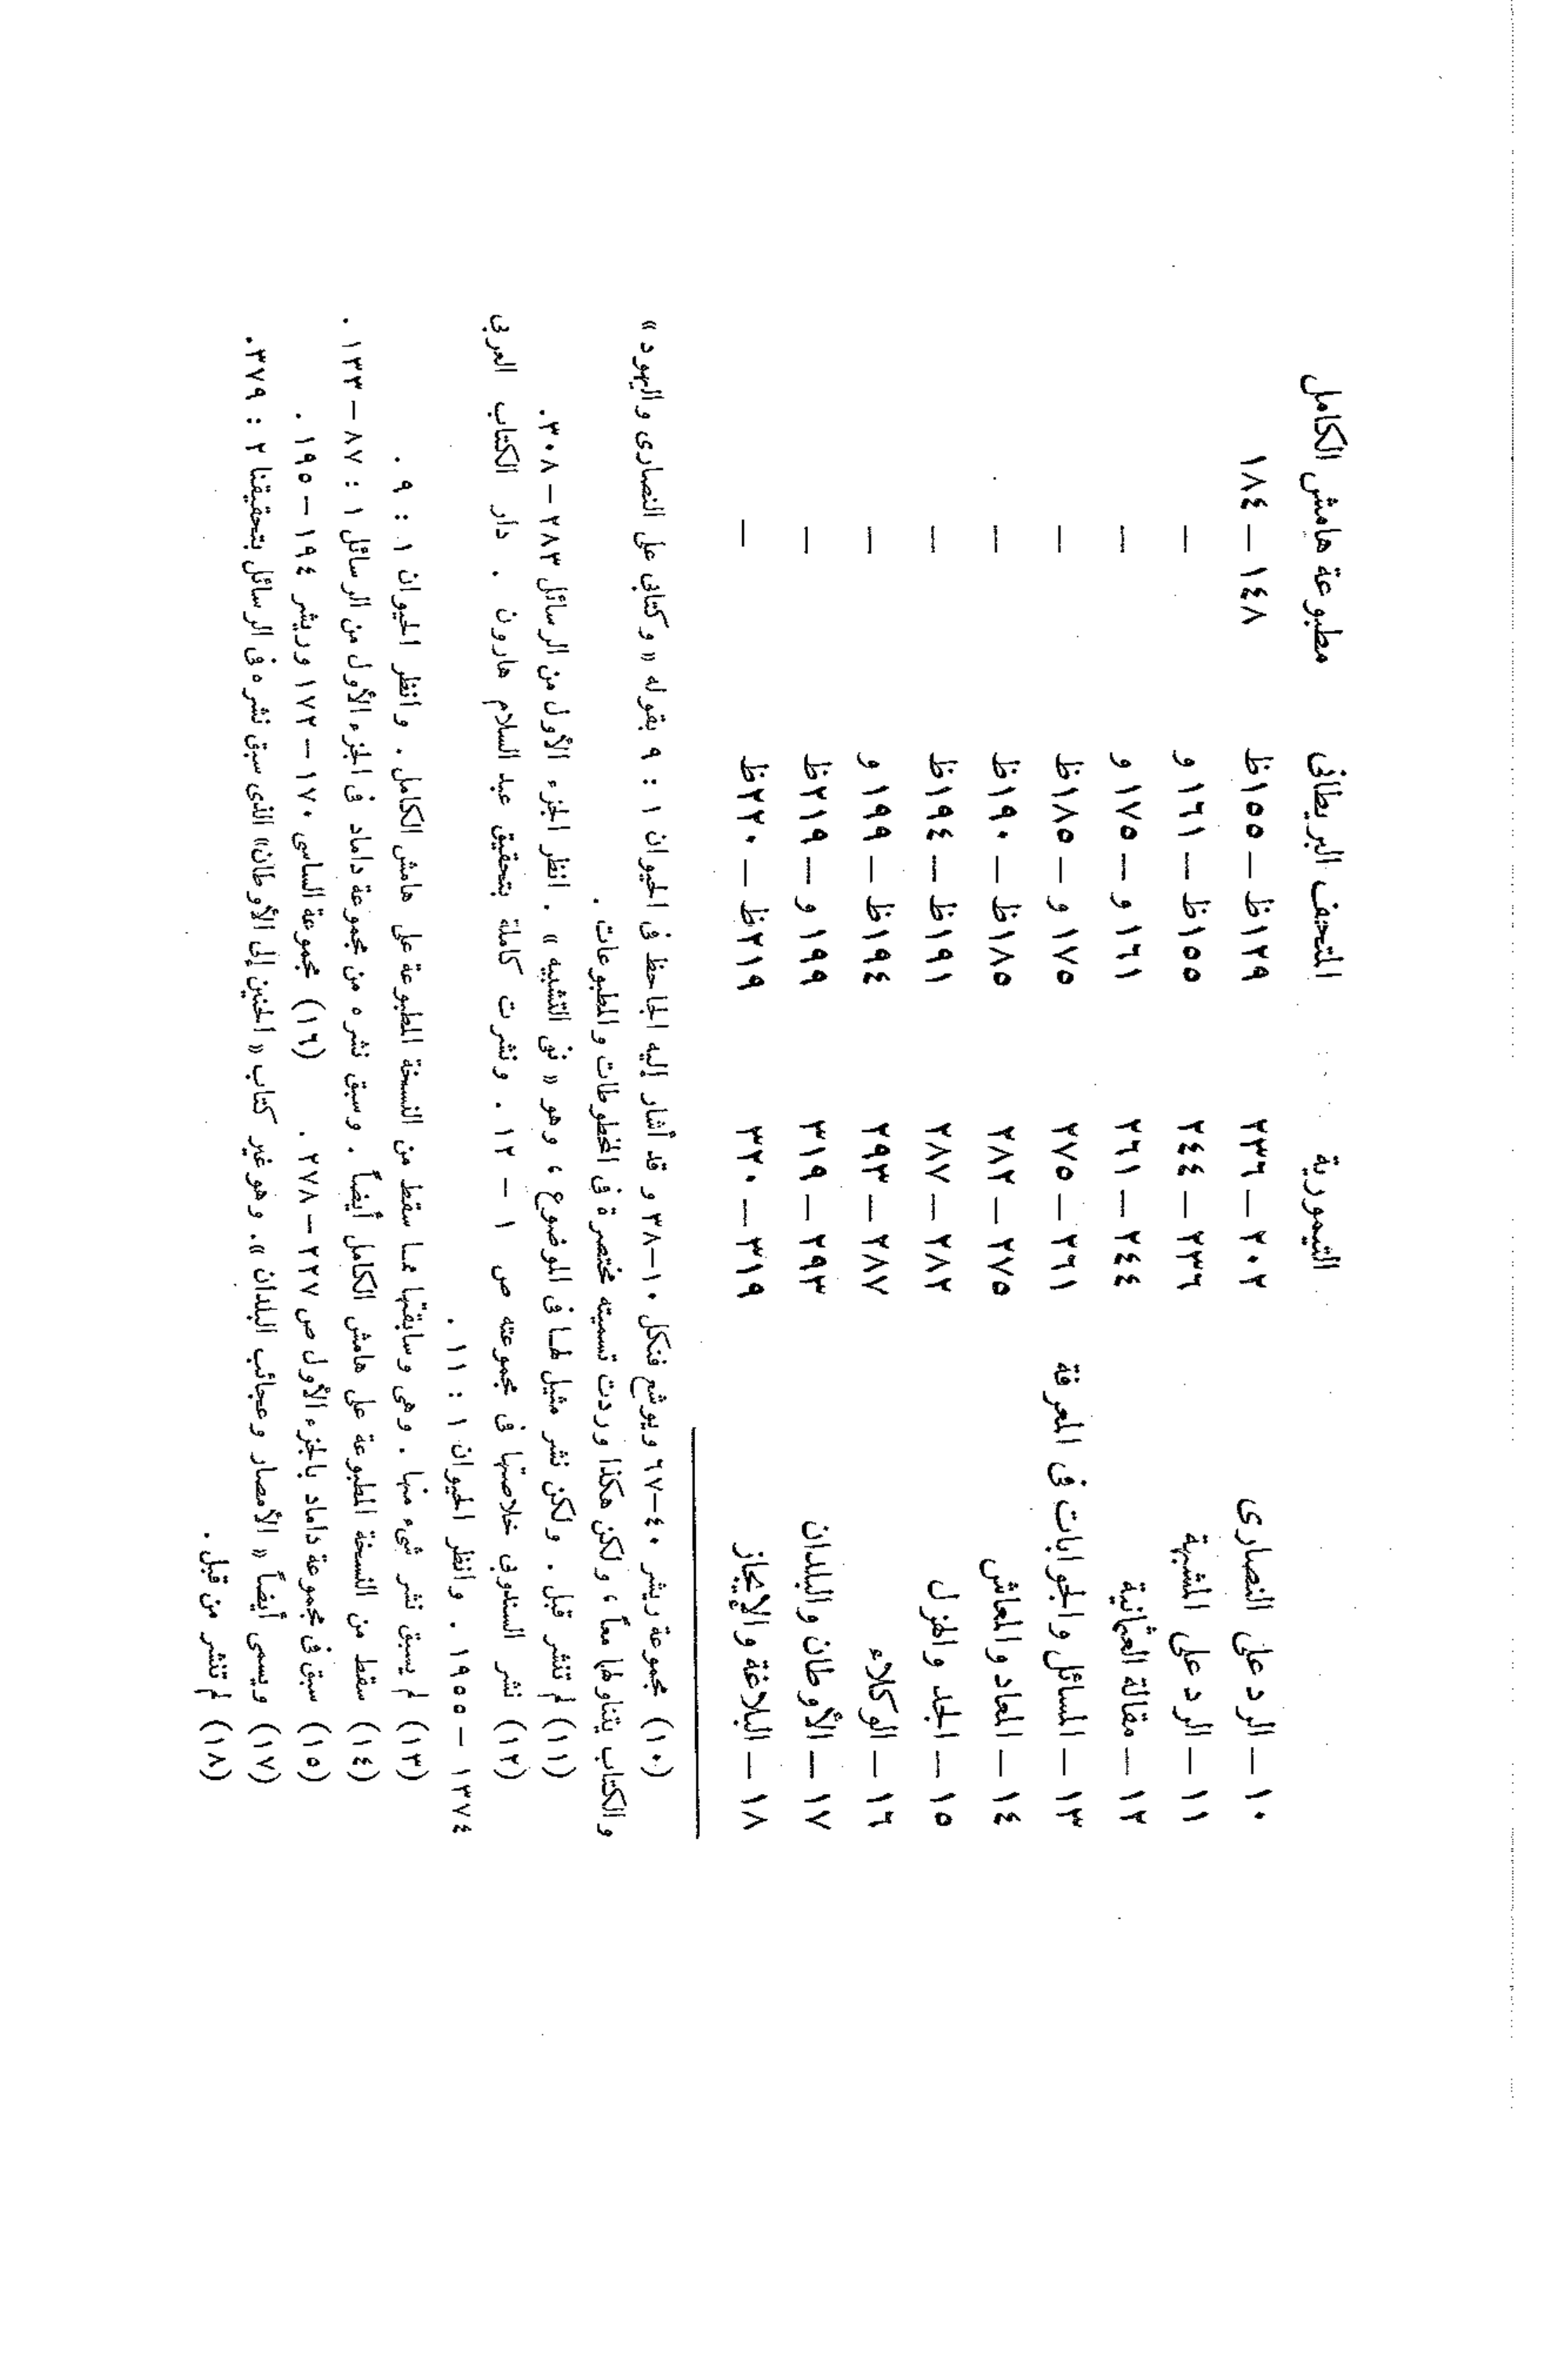 التيمورية المتحف البريطانى مطبوعة هامش الكامل
١٠ – الرد على النصارى ٢٠٢ – ٢٣٦ ١٢٩ظ – ١٥٥ظ ١٤٨ – ١٨٤
١١ – الرد على المشبهة ٢٣٦ – ٢٤٤ ١٥٥ظ – ١٦١ و –
١٢ – مقالة العثمانية ٢٤٤ – ٢٦١ ١٦١ و – ١٧٥ و –
١٣ – المسائل والجوابات فى المعرفة ٢٦١ – ٢٧٥ ١٧٥ و – ١٨٥ظ –
١٤ – المعاد والمعاش ٢٧٥ – ٢٨٢ ١٨٥ظ – ١٩٠ظ –
١٥ – الجد والهزل ٢٨٢ – ٢٨٧ ١٩١ظ – ١٩٤ظ –
١٦ – الوكلاء ٢٨٧ – ٢٩٣ ١٩٤ظ – ١٩٩ و –
١٧ – الأوطان والبلدان ٢٩٣ – ٣١٩ ١٩٩ و – ٢١٩ظ –
١٨ – البلاغة والإيجاز ٣١٩ – ٣٢٠ ٢١٩ظ – ٢٢٠ظ –
(١٠) مجموعة ريشر ٤٠–٦٧ ويوشع فنكل ١٠–٣٨ وقد أشار إليه الجاحظ فى الحيوان ١ : ٩ بقوله « وكتابى على النصارى واليهود »
والكتاب يتناولهما معاً ، ولكن هكذا وردت تسميته مختصرة فى المخطوطات والمطبوعات .
(١١) لم تنشر قبل . ولكن نشر مثيل لها فى الموضوع ، وهو « نفى التشبيه » . انظر الجزء الأول من الرسائل ٢٨٣ – ٣٠٨.
(١٢) نشر السندوبى خلاصتها فى مجموعته ص ١ – ١٢ . ونشرت كاملة بتحقيق عبد السلام هارون . دار الكتاب العربى
١٣٧٤ – ١٩٥٥ . وانظر الحيوان ١ : ١١ .
(١٣) لم يسبق نشر شىء منها . وهى وسابقتها مما سقط من النسخة المطبوعة على هامش الكامل . وانظر الحيوان ١ : ٩ .
(١٤) سقط من النسخة المطبوعة على هامش الكامل أيضاً . وسبق نشره من مجموعة داماد فى الجزء الأول من الرسائل ١ : ٨٧ – ١٣٣ .
(١٥) سبق فى مجموعة داماد بالجزء الأول ص ٢٢٧ – ٢٧٨ . (١٦) مجموعة الساسى ١٧٠ – ١٧٢ وريشر ١٩٤ – ١٩٥ .
(١٧) ويسمى أيضاً « الأمصار وعجائب البلدان » . وهو غير كتاب « الحنين إلى الأوطان » الذى سبق نشره فى الرسائل بتحقيقنا ٢ : ٣٧٩.
(١٨) لم تنشر من قبل .